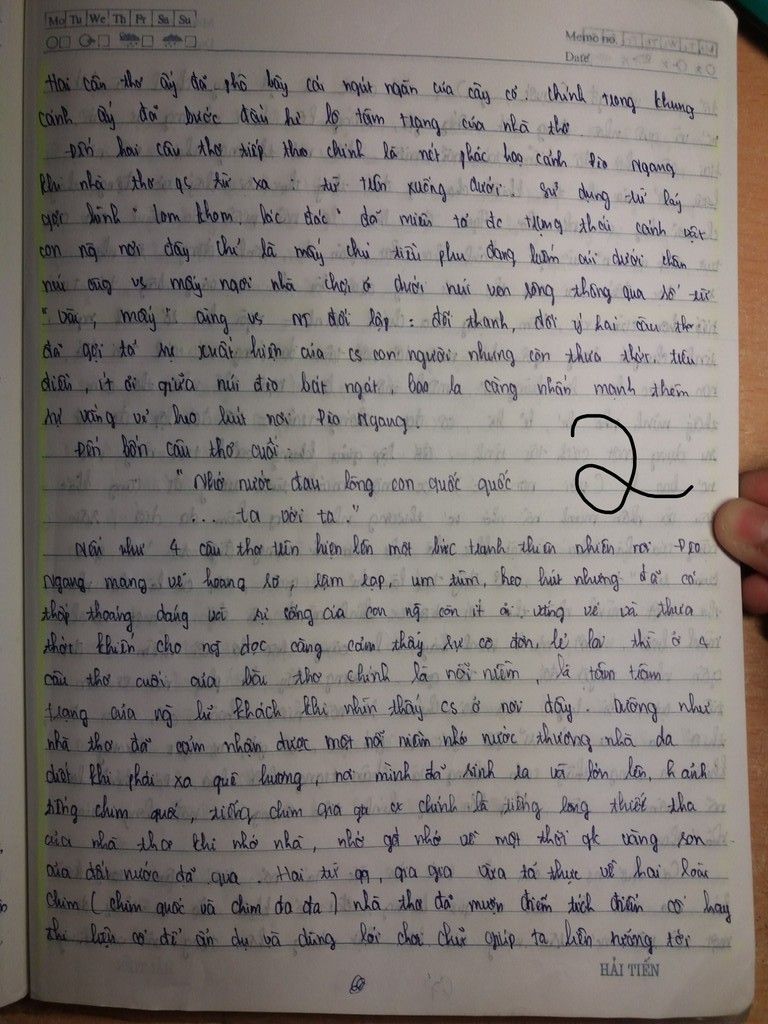 Mo Tu We Th Fr Sa Su
Memo No.
Date
Hai câu thơ ấy đã phô bầy cái ngút ngàn của cây cỏ. Chính trong khung
cảnh ấy đã bước đầu hé lộ tâm trạng của nhà thơ.
Đến hai câu thơ tiếp theo chính là nét phác hoạ cảnh Đèo Ngang
khi nhà thơ qs từ xa : từ trên xuống dưới. Sử dụng từ láy
gợi hình " lom khom, lác đác " đã miêu tả đc trạng thái cảnh vật
con ng nơi đây chỉ là mấy chú tiều phu đang lượm củi dưới chân
núi cùng vs mấy ngôi nhà chợ ở dưới núi ven sông thông qua số từ
" vài, mấy " cùng vs NT đối lập : đối thanh, đối ý hai câu thơ
đã gợi tả sự xuất hiện của cs con người nhưng còn thưa thớt, tiêu
điều, ít ỏi giữa núi đèo bát ngát, bao la càng nhấn mạnh thêm
sự vắng vẻ heo hút nơi Đèo Ngang
Đến bốn câu thơ cuối :
" Nhớ nước đau lòng con quốc quốc
... ta với ta "
2
Nếu như 4 câu thơ trên hiện lên một bức tranh thiên nhiên nơi Đèo
Ngang mang vẻ hoang sơ, rậm rạp, um tùm, heo hút nhưng đã có
thấp thoáng dáng vẻ sự sống của con ng còn ít ỏi vắng vẻ và thưa
thớt khiến cho ng đọc càng cảm thấy sự cô đơn, lẻ loi thì ở 4
câu thơ cuối của bài thơ chính là nỗi niềm, là tâm tâm
trạng của ng lữ khách khi nhìn thấy cs ở nơi đây. Dường như
nhà thơ đã cảm nhận được một nỗi niềm nhớ nước thương nhà da
diết khi phải xa quê hương, nơi mình đã sinh ra và lớn lên, h ảnh
tiếng chim quốc, tiếng chim gia gia chính là tiếng lòng thiết tha
của nhà thơ khi nhớ nhà, nhớ về một thời qk vàng son
của đất nước đã qua. Hai từ qq, gia gia vừa tả thực về hai loài
chim ( chim quốc và chim đa đa ) nhà thơ đã mượn điển tích điển cố hay
để ẩn dụ và dùng lối chơi chữ giúp ta liên tưởng tới
HẢI TIẾN